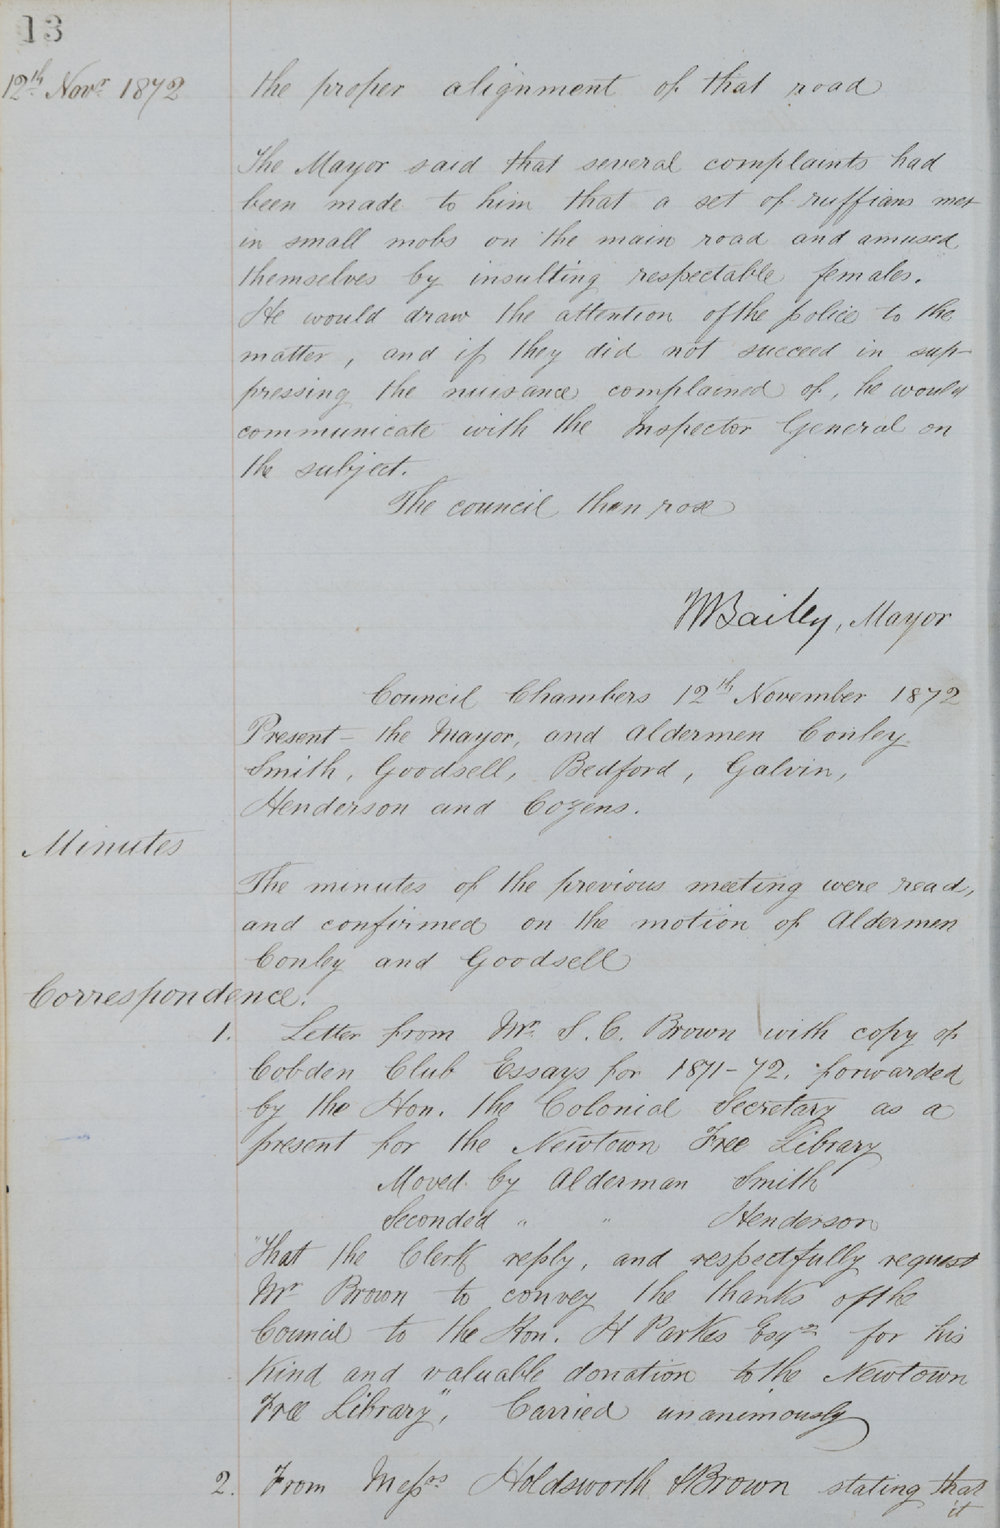 13
12th Novr 1872
the proper alignment of that road
The Mayor said that several complaints had
been made to him that a set of ruffians met
in small mobs on the main road and amused
themselves by insulting respectable females.
He would draw the attention of the police to the
matter, and if they did not succeed in sup-
pressing the nuisance complained of, he would
communicate with the Inspector General on
the subject.
The council then rose
WBailey, Mayor
Council Chambers 12th November 1872
Present - the Mayor, and Aldermen Conley
Smith, Goodsell, Bedford, Galvin,
Henderson and Cozens.
Minutes
The minutes of the previous meeting were read,
and confirmed on the motion of Aldermen
Conley and Goodsell
Correspondence.
1. Letter from Mr. S. C. Brown with copy of
Cobden Club Essays for 1871-72. forwarded
by the Hon. the Colonial Secretary as a
present for the Newtown Free Library
Moved by Alderman Smith
Seconded " " Henderson
"That the Clerk reply, and respectfully request
Mr Brown to convey the thanks of the
Council to the Hon. H Parkes Esqre for his
kind and valuable donation to the Newtown
Free Library", Carried unanimously
2. From Messrs Holdsworth & Brown stating that
it